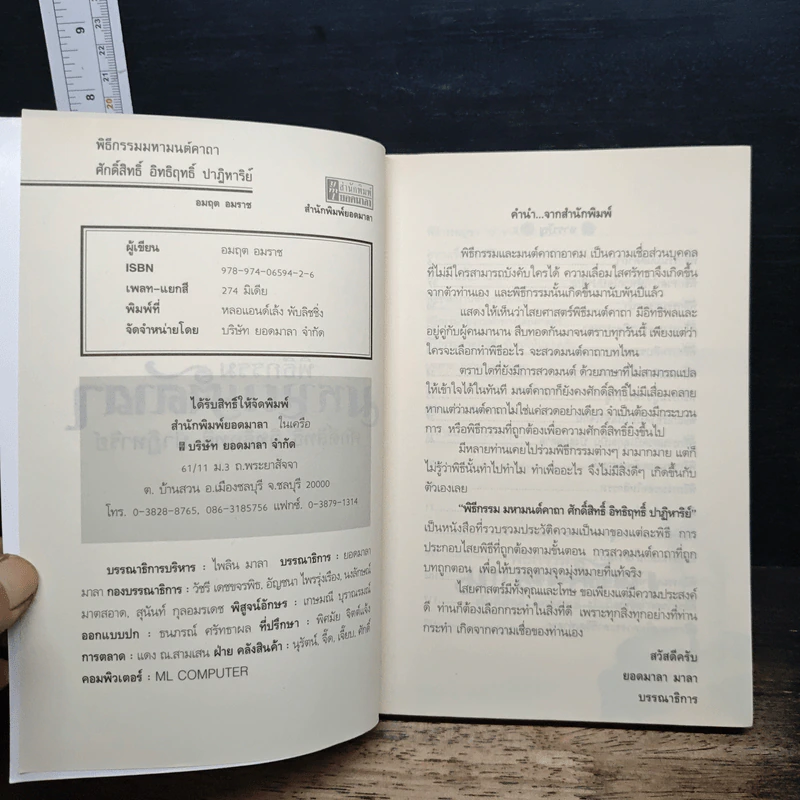 9
23
22
21
8
20
พิธีกรรมมหามนต์คาถา
ศักดิ์สิทธิ์ อิทธิฤทธิ์ ปาฏิหาริย์
อมฤต อมราช
สำนักพิมพ์
ยอดมาลา
สำนักพิมพ์ยอดมาลา
ผู้เขียน อมฤต อมราช
ISBN 978-974-06594-2-6
เพลท-แยกสี 274 มิเดีย
พิมพ์ที่ หลอแอนด์เล้ง พับลิชชิ่ง
จัดจำหน่ายโดย บริษัท ยอดมาลา จำกัด
ได้รับสิทธิ์ให้จัดพิมพ์
สำนักพิมพ์ยอดมาลา ในเครือ
บริษัท ยอดมาลา จำกัด
61/11 ม.3 ถ.พระยาสัจจา
ต. บ้านสวน อ.เมืองชลบุรี จ.ชลบุรี 20000
โทร. 0-3828-8765, 086-3185756 แฟกซ์. 0-3879-1314
บรรณาธิการบริหาร : ไพลิน มาลา บรรณาธิการ : ยอดมาลา
มาลา กองบรรณาธิการ : วัชรี เดชขจรพิช, อัญชนา ไพรรุ่งเรือง, นงลักษณ์
มาตสอาด, สุนันท์ กุลอมรเดช พิสูจน์อักษร : เกษมณี บุราณรมณ์
ออกแบบปก : ธนภรณ์ ศรัทธาผล ที่ปรึกษา : พิศมัย จิตต์แจ้ง
การตลาด : แดง ณ.สามเสน ฝ่าย คลังสินค้า : นุรัตน์, จี๊ด, เจี๊ยบ, ศักดิ์
คอมพิวเตอร์ : ML COMPUTER
คำนำ...จากสำนักพิมพ์
พิธีกรรมและมนต์คาถาอาคม เป็นความเชื่อส่วนบุคคล
ที่ไม่มีใครสามารถบังคับใครได้ ความเลื่อมใสศรัทธาจึงเกิดขึ้น
จากตัวท่านเอง และพิธีกรรมนั้นเกิดขึ้นมานับพันปีแล้ว
แสดงให้เห็นว่าไสยศาสตร์พิธีมนต์คาถา มีอิทธิพลและ
อยู่คู่กับผู้คนมานาน สืบทอดกันมาจนตราบทุกวันนี้ เพียงแต่ว่า
ใครจะเลือกทำพิธีอะไร จะสวดมนต์คาถาบทไหน
ตราบใดที่ยังมีการสวดมนต์ ด้วยภาษาที่ไม่สามารถแปล
ให้เข้าใจได้ในทันที มนต์คาถาก็ยังคงศักดิ์สิทธิ์ไม่เสื่อมคลาย
หากแต่ว่ามนต์คาถาไม่ใช่แค่สวดอย่างเดียว จำเป็นต้องมีกระบวน
การ หรือพิธีกรรมที่ถูกต้องเพื่อความศักดิ์สิทธิ์ยิ่งขึ้นไป
มีหลายท่านเคยไปร่วมพิธีกรรมต่างๆ มามากมาย แต่ก็
ไม่รู้ว่าพิธีนั้นทำไปทำไม ทำเพื่ออะไร จึงไม่มีสิ่งดีๆ เกิดขึ้นกับ
ตัวเองเลย
"พิธีกรรม มหามนต์คาถา ศักดิ์สิทธิ์ อิทธิฤทธิ์ ปาฏิหาริย์"
เป็นหนังสือที่รวบรวมประวัติความเป็นมาของแต่ละพิธี การ
ประกอบไสยพิธีที่ถูกต้องตามขั้นตอน การสวดมนต์คาถาที่ถูก
บทถูกตอน เพื่อให้บรรลุตามจุดมุ่งหมายที่แท้จริง
ไสยศาสตร์มีทั้งคุณและโทษ ขอเพียงแต่มีความประสงค์
ดี ท่านก็ต้องเลือกกระทำในสิ่งที่ดี เพราะทุกสิ่งทุกอย่างที่ท่าน
กระทำ เกิดจากความเชื่อของท่านเอง
สวัสดีครับ
ยอดมาลา มาลา
บรรณาธิการ